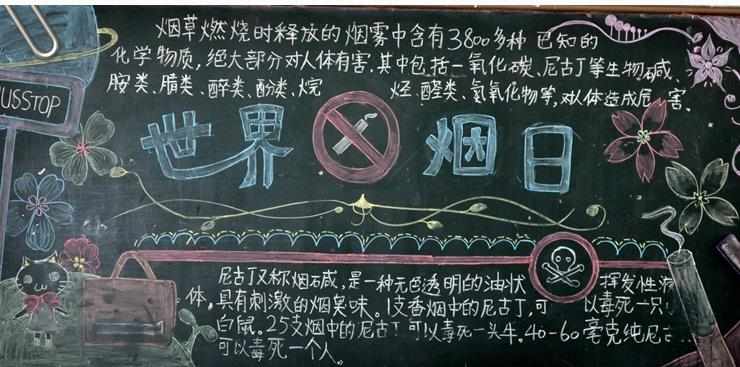 烟草燃烧时释放的烟雾中含有3800多种已知的
化学物质,绝大部分对人体有害.其中包括一氧化碳、尼古丁等生物碱、
胺类、腈类、醇类、酚类、烷 烃、醛类、氮氧化物等,对人体造成危害.
USSTOP
世界 烟日
尼古丁又称烟碱,是一种无色透明的油状 挥发性
体,具有刺激的烟臭味。1支香烟中的尼古丁,可以毒死一只
白鼠。25支烟中的尼古丁可以毒死一头牛。40-60毫克纯尼古
可以毒死一个人。